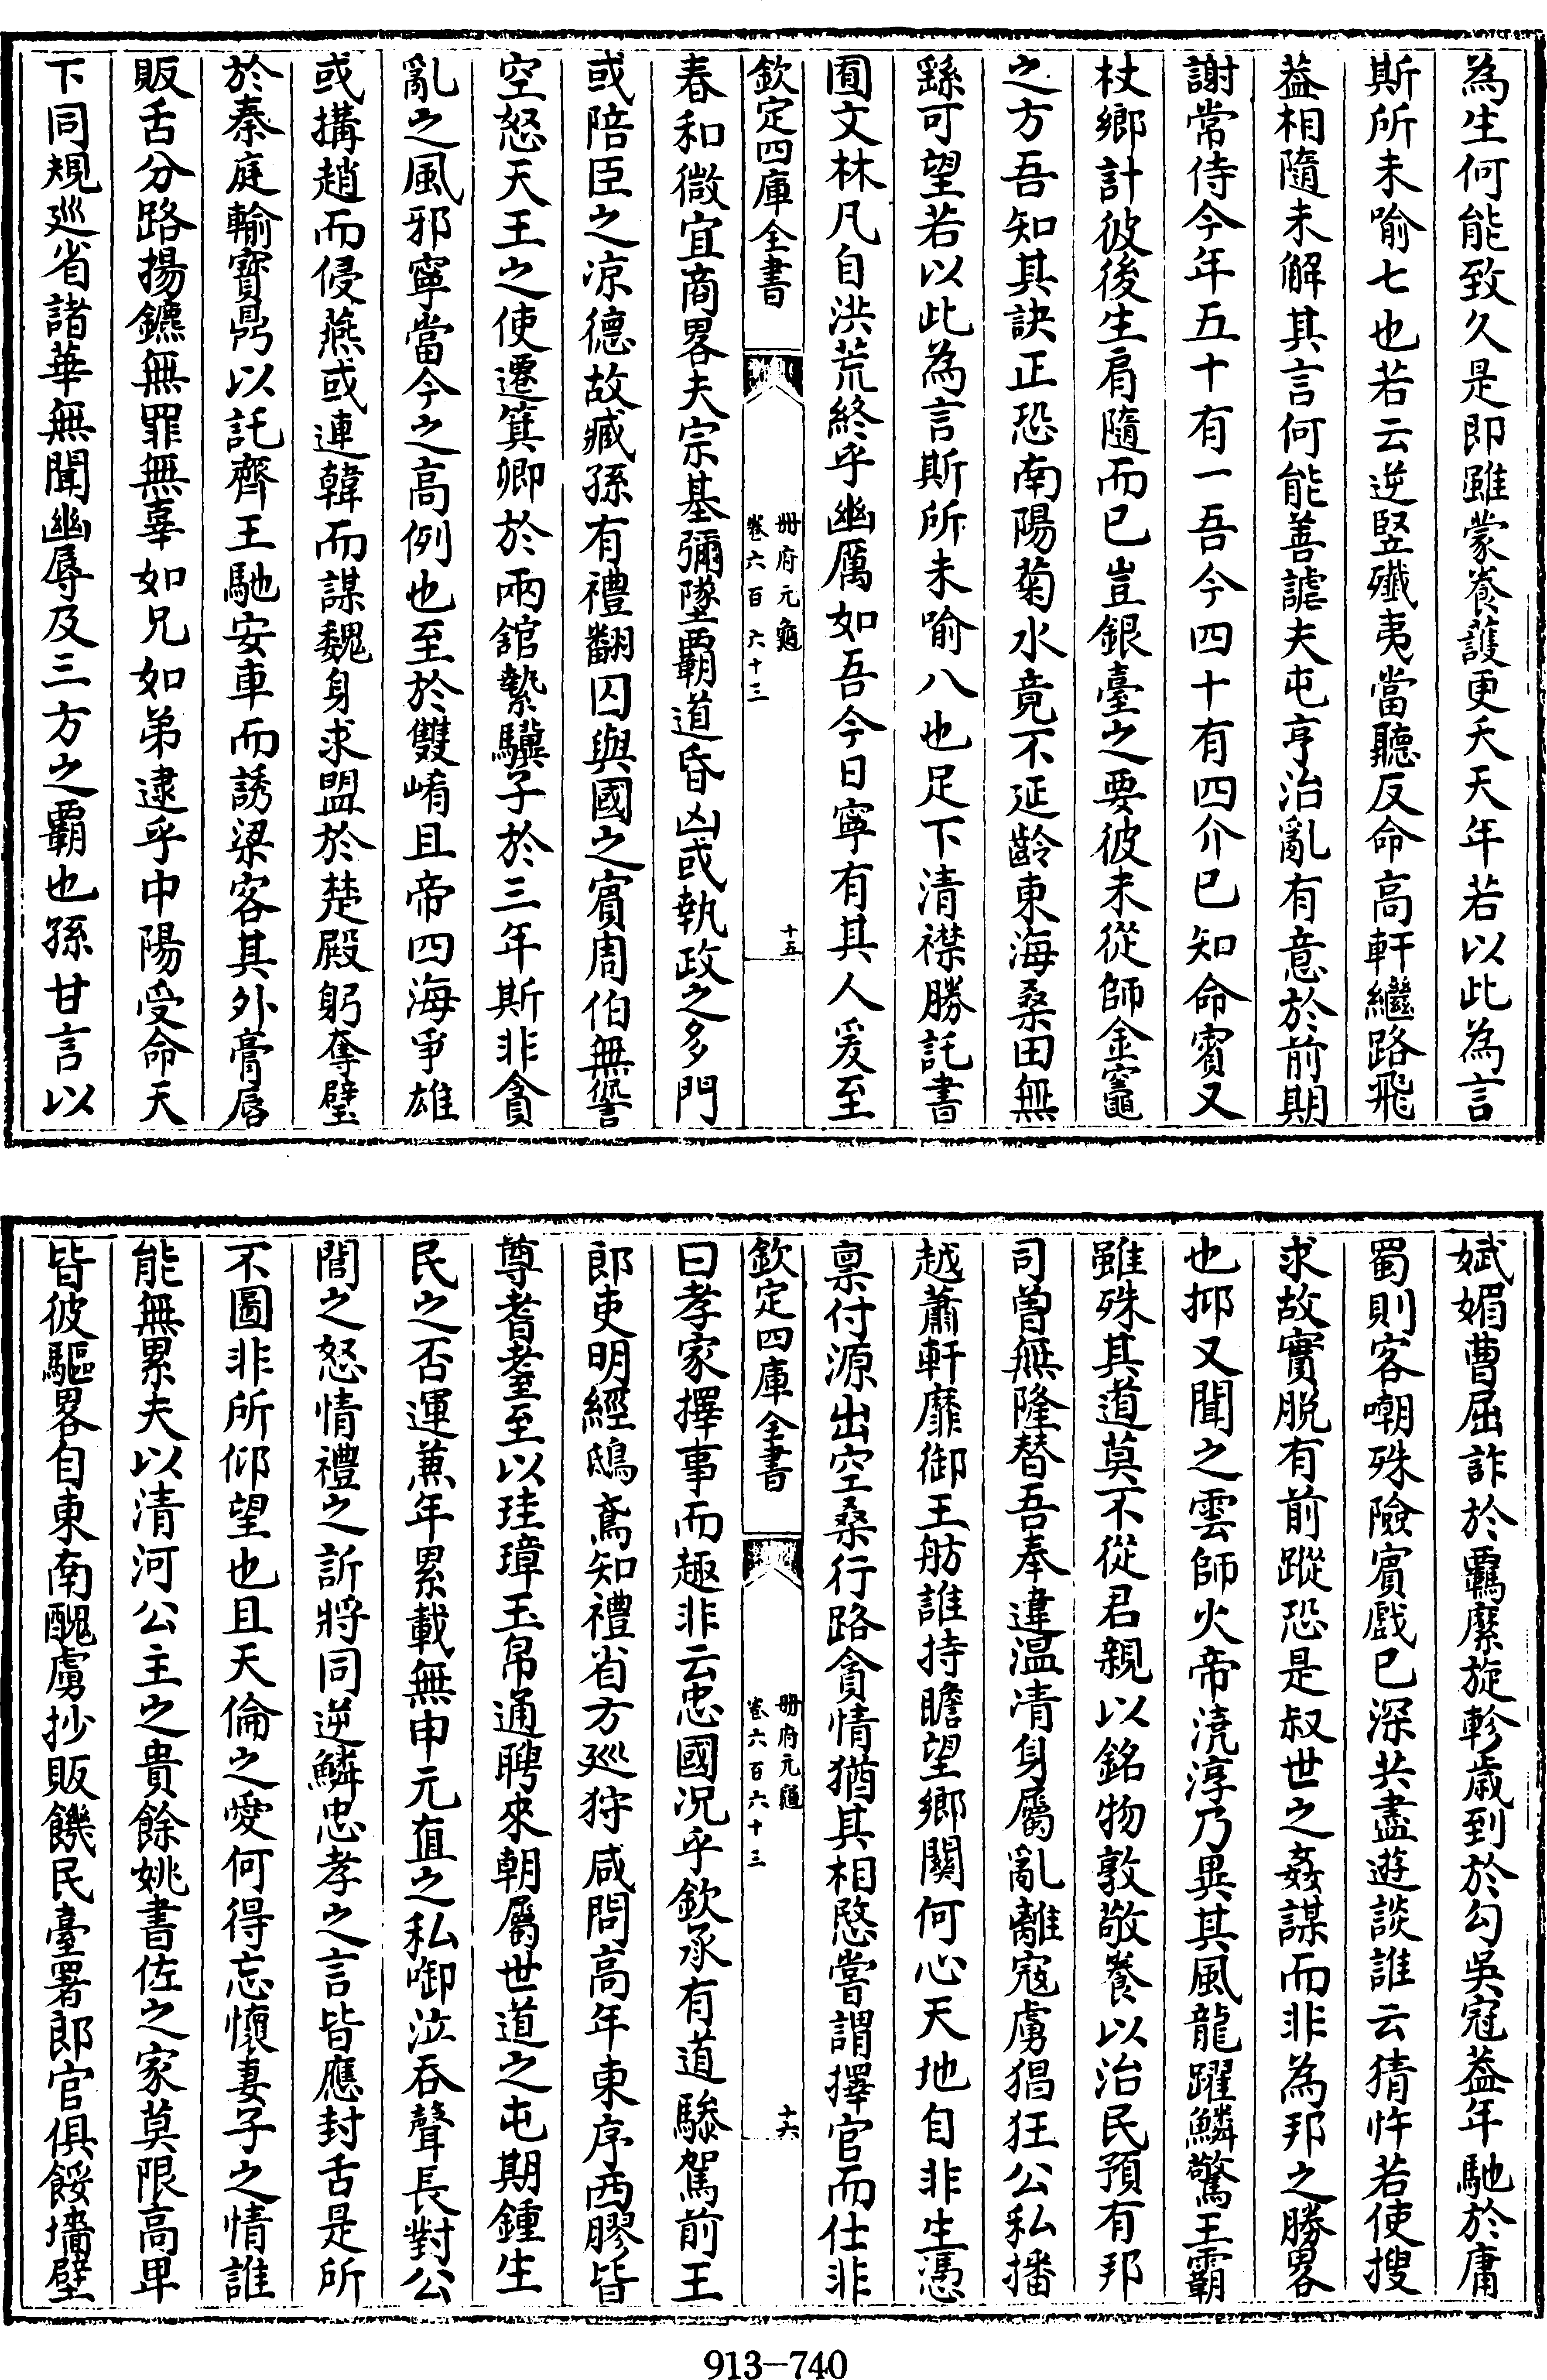 為生何能致久是即雖蒙養護更夭天年若以此為言
斯所未喻七也若云逆竪殱夷當聽反命高軒繼路飛
葢相隨未解其言何能善謔夫屯亨治亂有意於前期
謝常侍今年五十有一吾今四十有四介已知命賔又
杖鄉計彼後生肩隨而已豈銀臺之要彼未從師金竈
之方吾知其訣正恐南陽菊水竟不延齡東海桑田無
繇可望若以此為言斯所未喻八也足下清襟勝託書
囿文林凡自洪荒終乎幽厲如吾今日寧有其人爰至
欽定四庫全書
冊府元龜
卷六百六十三
十五
春和微宜商畧夫宗基彌墜霸道昏凶或執政之多門
或陪臣之凉德故臧孫有禮翻囚與國之賓周伯無諐
空怒天王之使遷箕卿於兩舘縶驥子於三年斯非貪
亂之風邪寧當今之高例也至於雙崤且帝四海爭雄
或搆趙而侵燕或連韓而謀魏身求盟於楚殿躬奪璧
於秦庭輸寳鼎以託齊王馳安車而誘梁客其外膏唇
販舌分路揚鑣無罪無辜如兄如弟逮乎中陽受命天
下同規巡省諸華無聞幽辱及三方之霸也孫甘言以
娬媚曹屈詐於羈縻旋軫歳到於勾吳冠葢年馳於庸
蜀則客嘲殊險賓戲已深共盡遊談誰云猜忤若使搜
求故實脱有前蹤恐是叔世之姦謀而非為邦之勝畧
也抑又聞之雲師火帝澆淳乃異其風龍躍鱗驚王霸
雖殊其道莫不從君親以銘物敦敬養以治民預有邦
司曽無隆替吾奉違温清身屬亂離寇虜猖狂公私播
越蕭軒靡御王舫誰持瞻望鄉關何心天地自非生憑
稟付源出空桑行路貪情猶其相愍嘗謂擇官而仕非
欽定四庫全書
冊府元龜
卷六百六十三
十六
曰孝家擇事而趣非云忠國况乎欽承有道驂駕前王
郎吏明經鴟鳶知禮省方廵狩咸問高年東序西膠皆
尊耆耋至以珪璋玉帛通聘來朝屬世道之屯期鍾生
民之否運兼年累載無申元直之私啣泣吞聲長對公
閭之怒情禮之訢將同逆鱗忠孝之言皆應封舌是所
不圖非所仰望也且天倫之愛何得忘懷妻子之情誰
能無累夫以清河公主之貴餘姚書佐之家莫限高卑
皆彼驅畧自東南醜虜抄販饑民臺署郎官俱餒墻壁
913-740